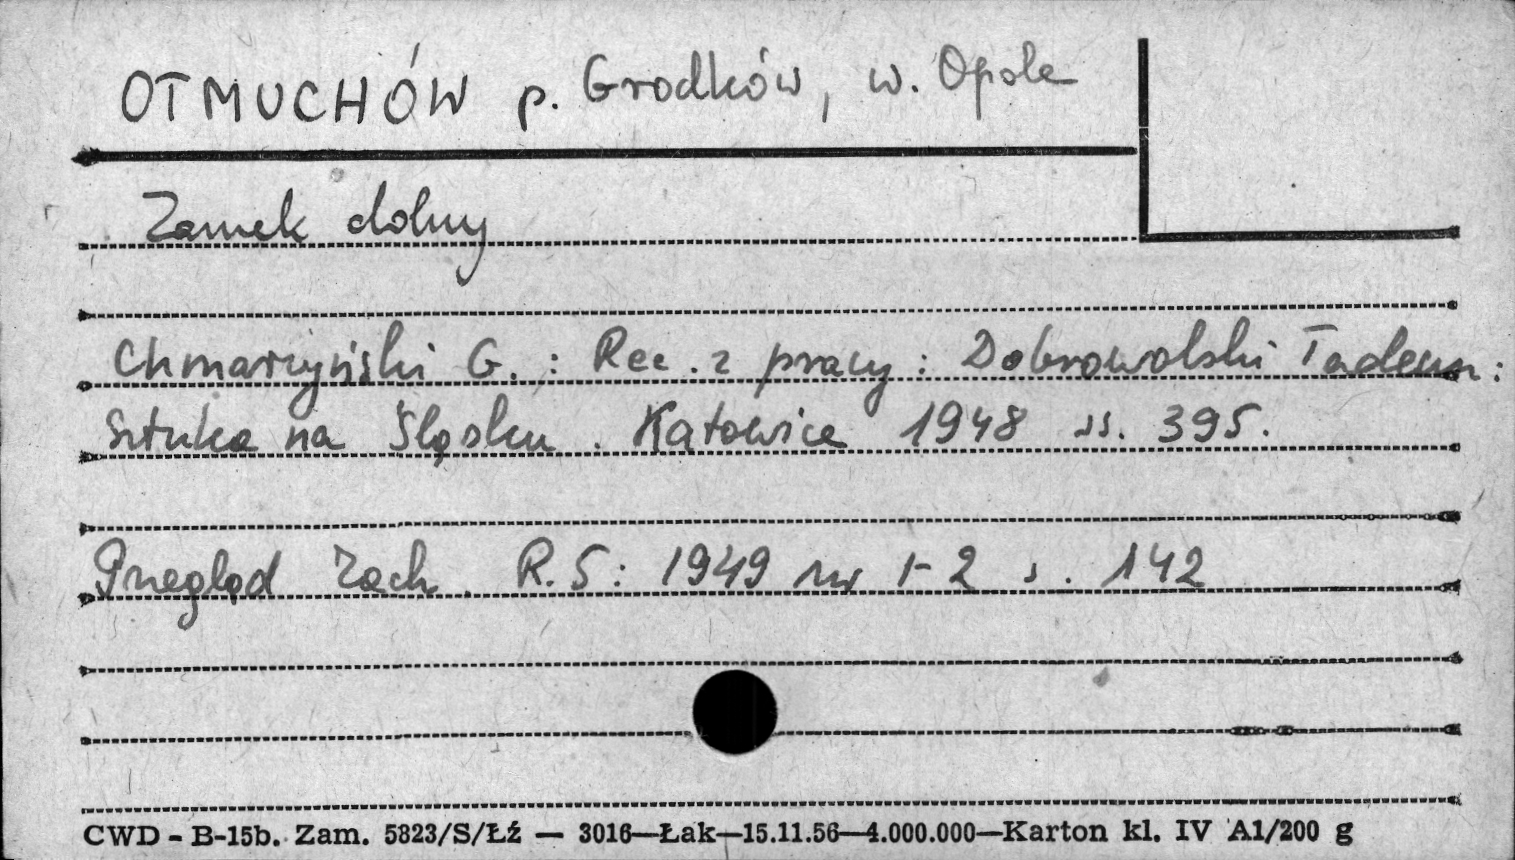 OTMUCHÓW p. Grodków, w. Opole
Zamek dolny
Chmarzyński G. : Rec. z pracy : Dobrowolski Tadeusz :
Sztuka na Śląsku. Katowice 1948 ss. 395.
Przegląd Zach. R. 5 : 1949 nr 1-2 s. 142
CWD - B-15b. Zam. 5823/S/Łź — 3016—Łak—15.11.56—4.000.000—Karton kl. IV A1/200 g